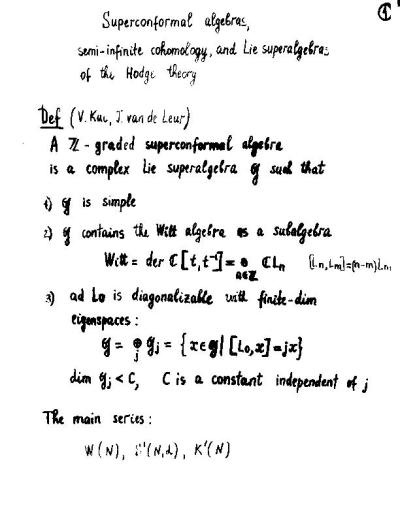 ①
Superconformal algebras,
semi-infinite cohomology, and Lie superalgebras
of the Hodge theory
Def (V. Kac, J. van de Leur)
A ℤ-graded superconformal algebra
is a complex Lie superalgebra 𝔤 such that
1) 𝔤 is simple
2) 𝔤 contains the Witt algebra as a subalgebra
Witt = der ℂ[t, t⁻¹] = ⊕ ℂLn [Ln, Lm] = (n-m)Ln+m
n∈ℤ
3) ad L₀ is diagonalizable with finite-dim
eigenspaces:
𝔤 = ⊕ 𝔤j = {x ∈ 𝔤 | [L₀, x] = jx}
j
dim 𝔤j < C, C is a constant independent of j
The main series:
W(N), S'(N,α), K'(N)